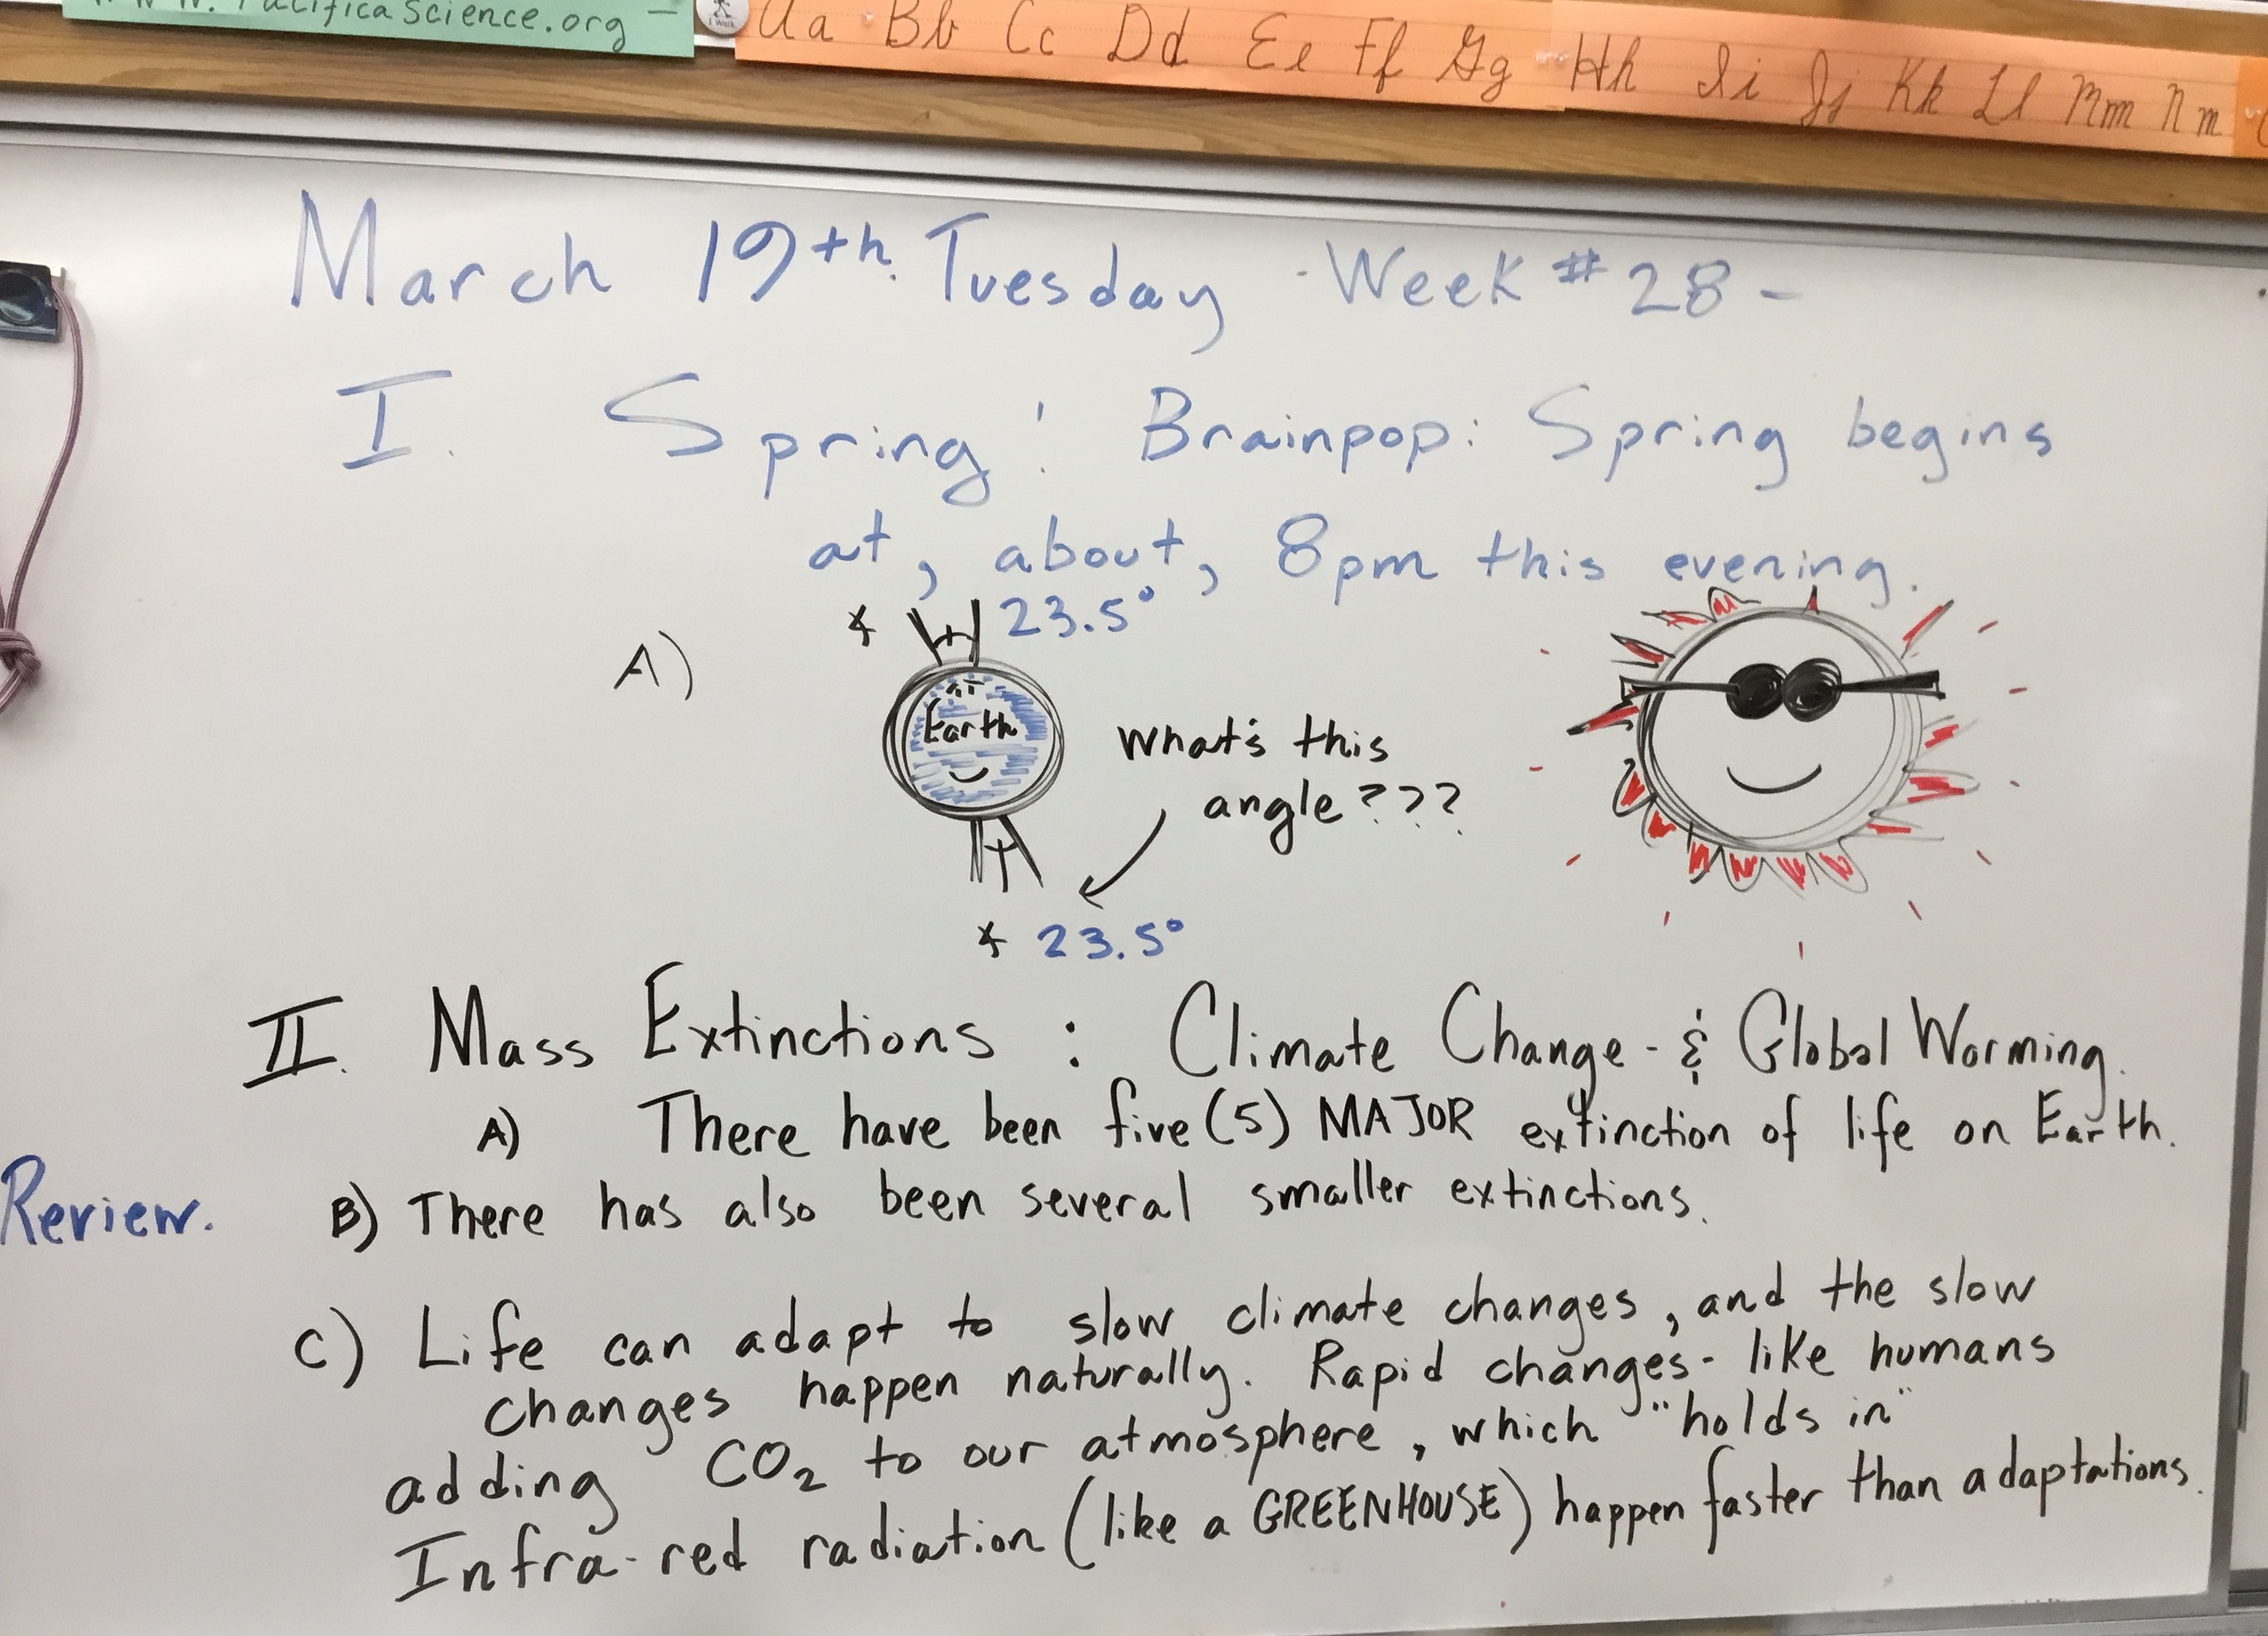 PacificaScience.org —
Aa Bb Cc Dd Ee Ff Gg Hh Ii Jj Kk Ll Mm Nn
March 19th. Tuesday - Week #28 -
I. Spring! Brainpop: Spring begins
at, about, 8pm this evening.
A)
∡ 23.5°
Earth
What's this
angle???
∡ 23.5°
II. Mass Extinctions : Climate Change - & Global Warming.
A) There have been five (5) MAJOR extinction of life on Earth.
Review. B) There has also been several smaller extinctions.
C) Life can adapt to slow climate changes, and the slow
changes happen naturally. Rapid changes - like humans
adding CO2 to our atmosphere, which "holds in"
Infra-red radiation (like a GREENHOUSE) happen faster than adaptations.